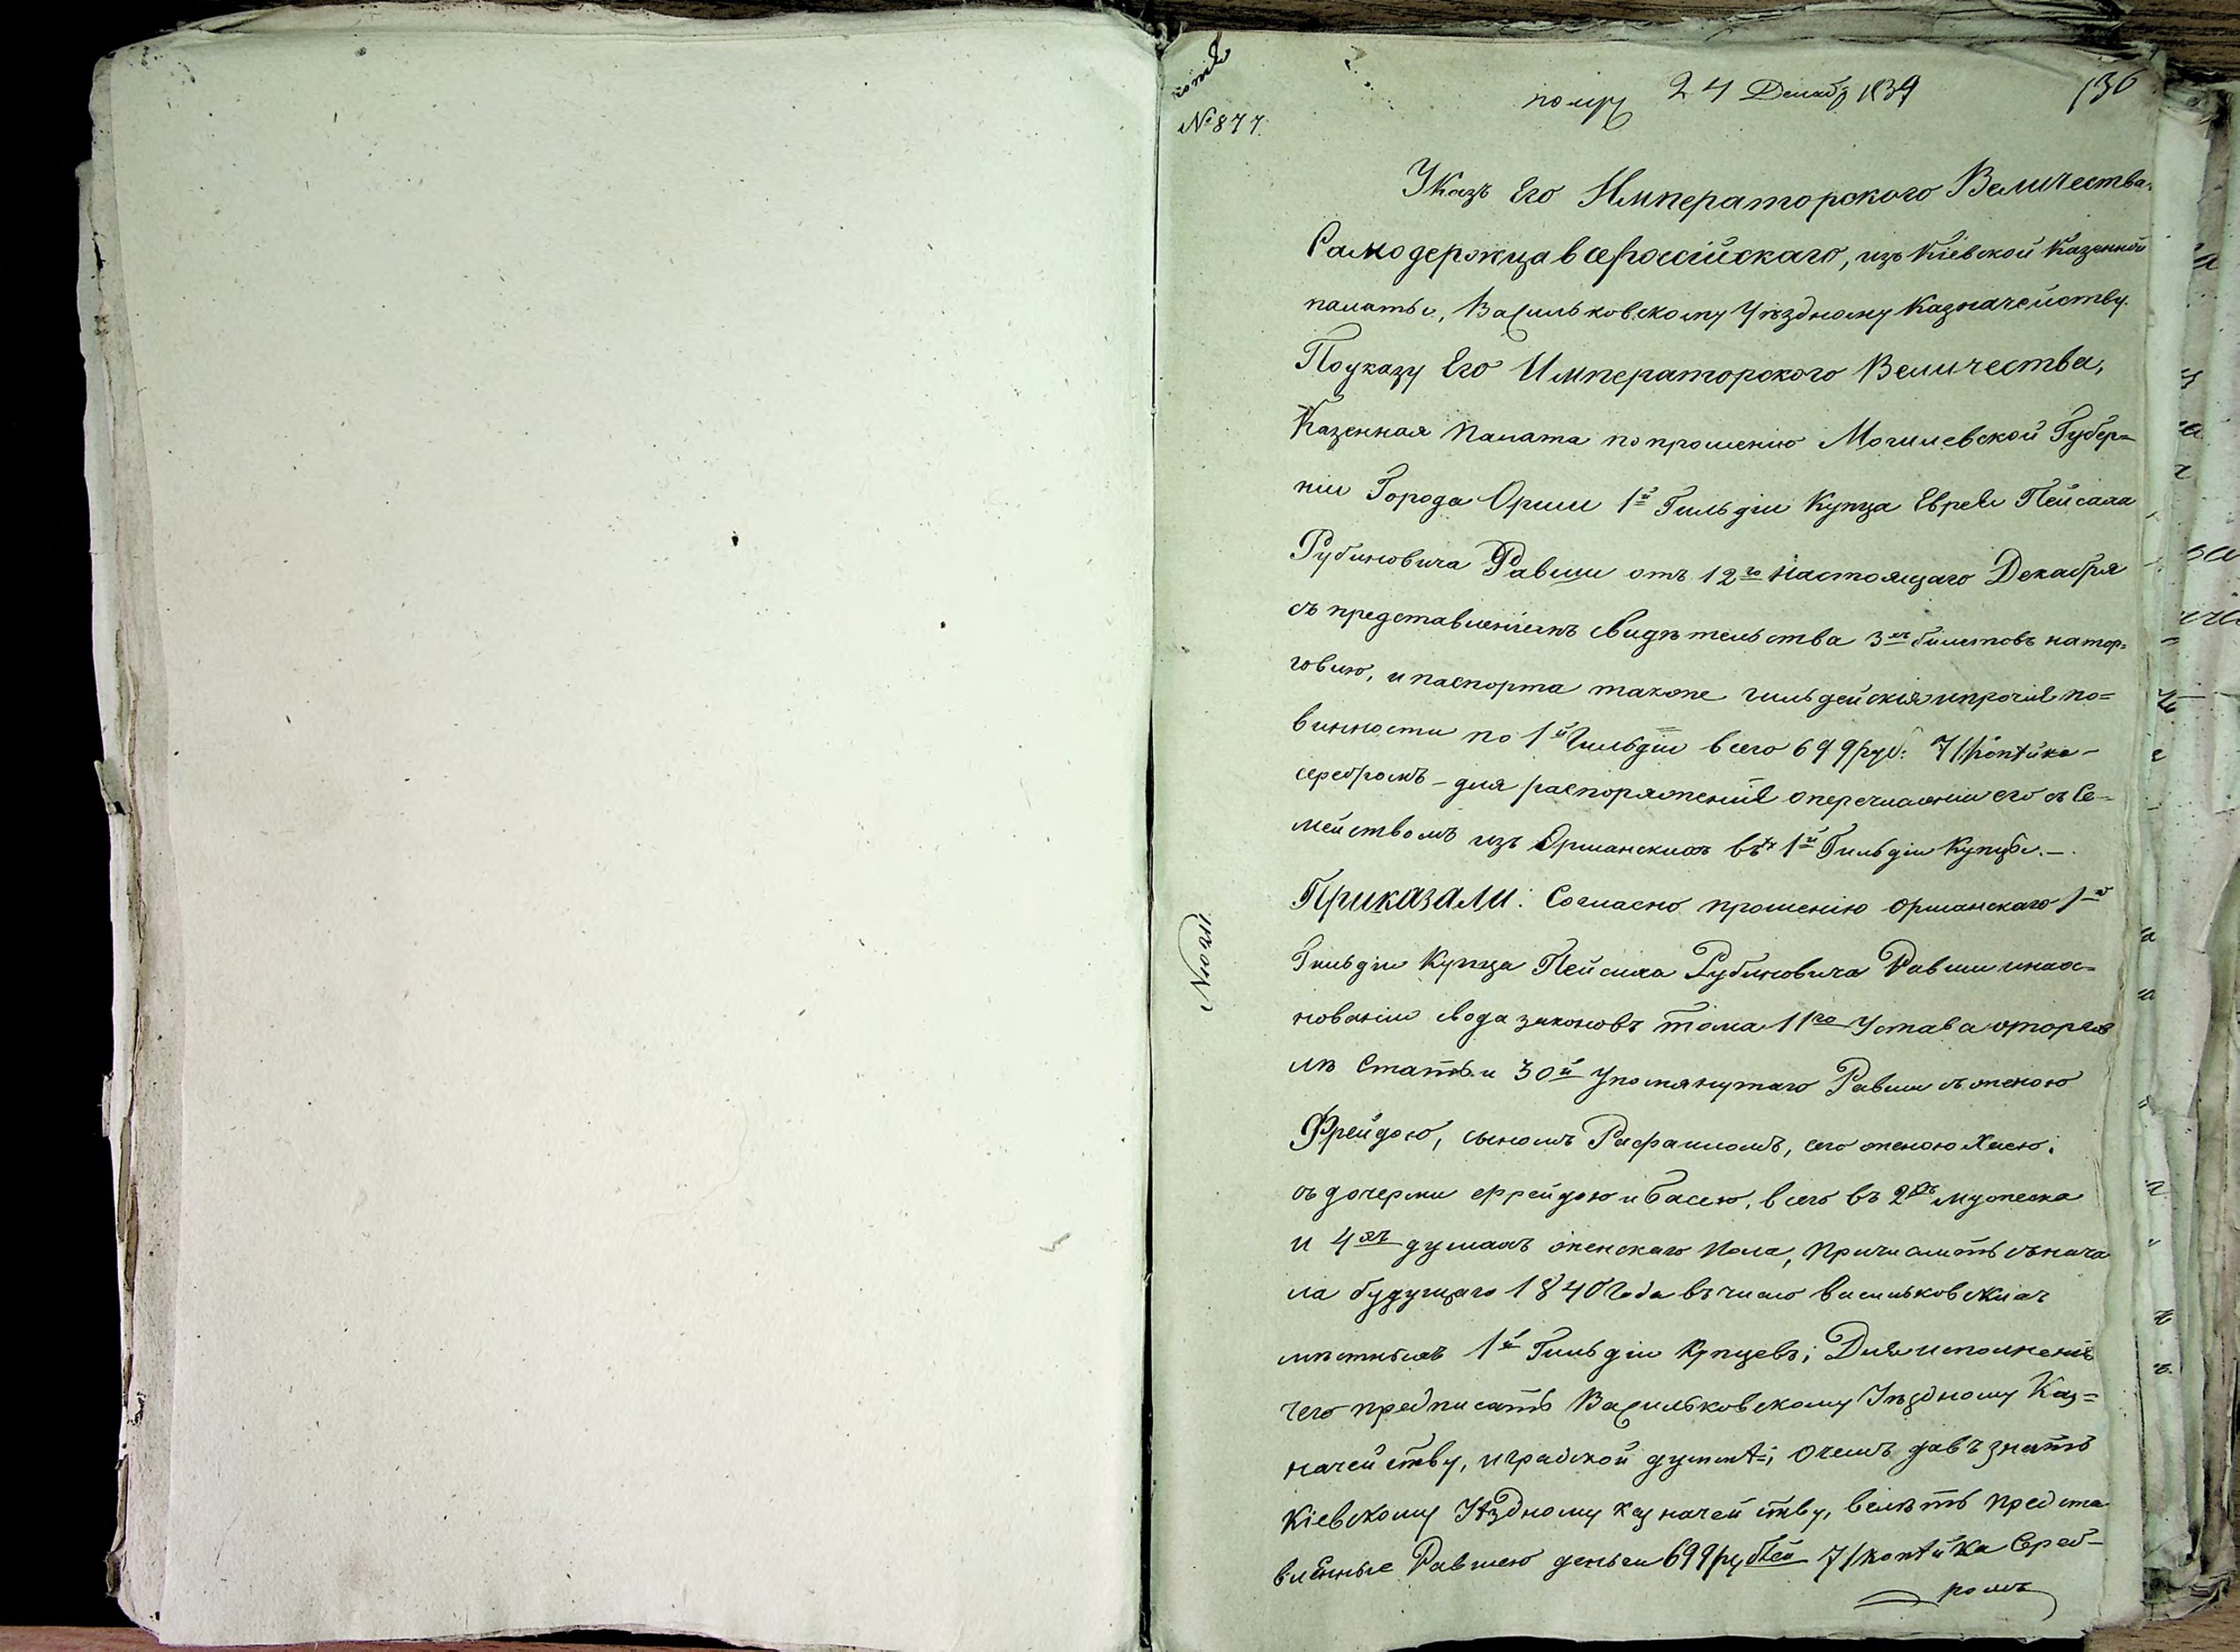 копія
№ 877.
полу 24 Декаб 1839
136
Указъ Его Императорского Величества
Самодержца всероссійскаго, изъ Кіевской Казенной
палаты, Васильковскому Уѣздному Казначейству.
По указу Его Императорского Величества,
Казенная Палата по прошенію Могилевской Губер=
ніи Города Орши 1й Гильдіи Купца Еврея Пейсаха
Рубиновича Равши отъ 12го Настоящаго Декабря
съ представленіемъ Свидѣтельства 3хъ билетовъ на тор=
говлю, и паспорта также гильдейскія и прочія по=
винности по 1й Гильдіи всего 699 руб: 71 копѣйка
серебромъ – для распоряженія о перечисленіи его съ Се-
мействомъ изъ Оршанскихъ въ 1й Гильдіи Купцы. –
Приказали: Согласно прошенію Оршанскаго 1й
Гильдіи Купца Пейсаха Рубиновича Равши и на ос=
нованіи свода законовъ тома 11го Устава о торгов
лѣ Статьи 30й Упомянутаго Равши съ женою
Фрейдою, сыномъ Рафаиломъ, его женою Хаею,
съ дочерми Фрейдою и Басею, всего въ 2хъ мужеска
и 4хъ душахъ женскаго пола, Причислить съ нача
ла будущаго 1840 Года въ число васильковскихъ
мѣстныхъ 1й Гильдіи Купцевъ; Для исполненія
чего предписать Васильковскому Уѣздному Каз=
начейству, и градской думѣ; О чемъ давъ знать
Кіевскому Уѣздному казначейству, велѣть предста
вленные Равшею деньги 699 рублей 71 копѣйка Сереб-
ромъ